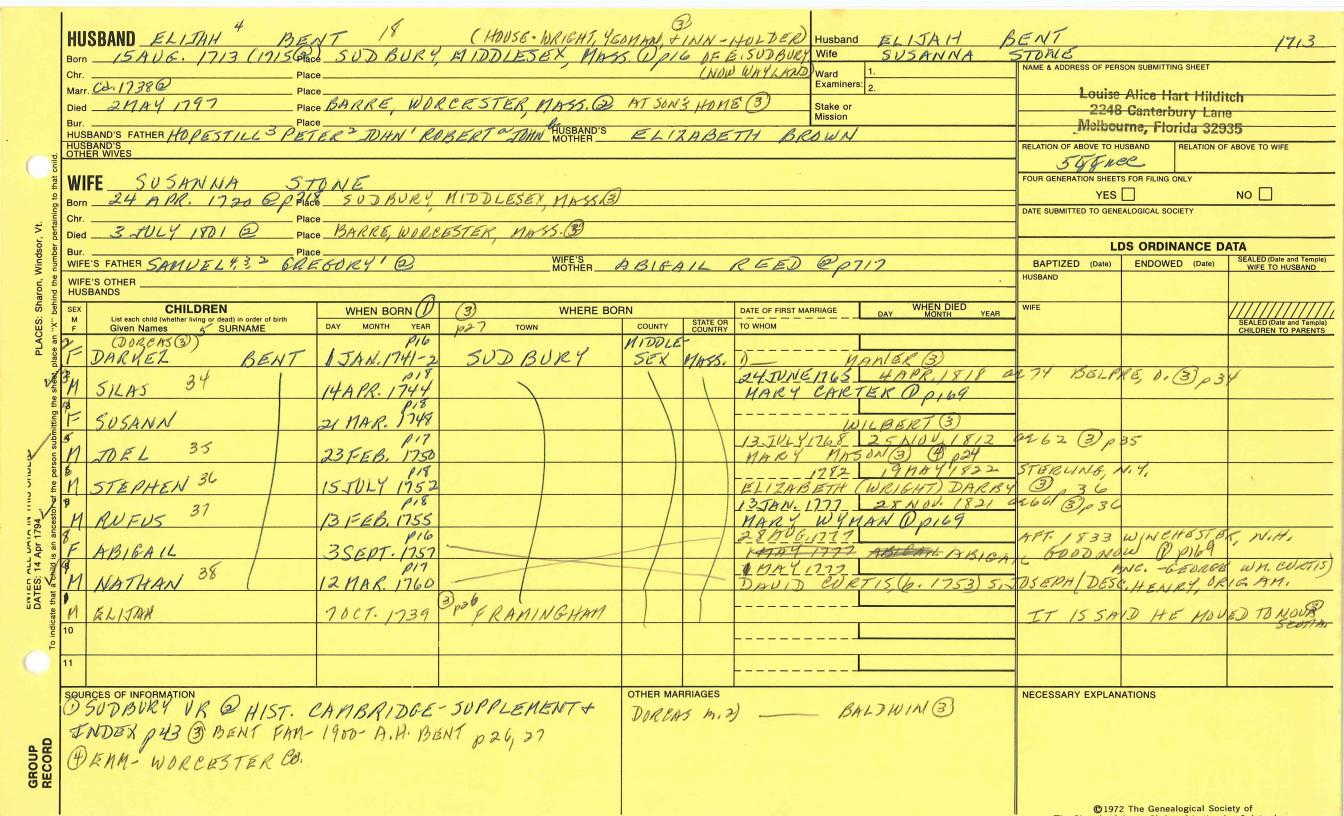 HUSBAND ELIJAH 4 BENT 18 (HOUSE-WRIGHT, YEOMAN, & INN-HOLDER) ③
Born 15 AUG. 1713 (1715③) Place SUDBURY, MIDDLESEX, MASS. ① p16 OF E. SUDBURY
Chr. Place (NOW WAYLAND)
Marr. Ca. 1738② Place
Died 2 MAY 1797 Place BARRE, WORCESTER, MASS. ② AT SON'S HOME ③
Bur. Place
HUSBAND'S FATHER HOPESTILL3 PETER2 JOHN1 ROBERTa JOHN HUSBAND'S MOTHER ELIZABETH BROWN
HUSBAND'S OTHER WIVES
WIFE SUSANNA STONE
Born 24 APR. 1720 @ Place SUDBURY, MIDDLESEX, MASS ③
Chr. Place
Died 3 JULY 1801 ② Place BARRE, WORCESTER, MASS. ③
Bur. Place
WIFE'S FATHER SAMUEL4,3,2 GREGORY1 ② WIFE'S MOTHER ABIGAIL REED @p717
WIFE'S OTHER HUSBANDS
Husband ELIJAH BENT 1713
Wife SUSANNA STONE
Ward 1.
Examiners: 2.
Stake or Mission
NAME & ADDRESS OF PERSON SUBMITTING SHEET
Louise Alice Hart Hilditch
2248 Canterbury Lane
Melbourne, Florida 32935
RELATION OF ABOVE TO HUSBAND RELATION OF ABOVE TO WIFE
FOUR GENERATION SHEETS FOR FILING ONLY
YES NO
DATE SUBMITTED TO GENEALOGICAL SOCIETY
LDS ORDINANCE DATA
BAPTIZED (Date) ENDOWED (Date) SEALED (Date and Temple) WIFE TO HUSBAND
HUSBAND
WIFE
SEALED (Date and Temple) CHILDREN TO PARENTS
SEX M F CHILDREN WHEN BORN ① ③ WHERE BORN DATE OF FIRST MARRIAGE WHEN DIED
List each child (whether living or dead) in order of birth
Given Names 5 SURNAME DAY MONTH YEAR p27 TOWN COUNTY STATE OR COUNTRY TO WHOM DAY MONTH YEAR
(DORCAS③) p16 MIDDLE-
F DARKEL BENT 1 JAN. 1741-2 SUDBURY SEX MASS. MANER ③
p18 24 JUNE 1765 4 APR. 1818 ae 74 BELPRE, O. ③ p34
M SILAS 34 14 APR. 1744 MARY CARTER ① p169
p18
F SUSANN 21 MAR. 1748 WILBERT ③
p17 13 JULY 1768 25 NOV. 1812 ae 62 ③ p35
M JOEL 35 23 FEB. 1750 MARY MASON ③ ④ p24
p18 1782 19 MAY 1822 STERLING, N.Y.
M STEPHEN 36 15 JULY 1752 ELIZABETH (WRIGHT) DARBY ③ p36
p18 13 JAN. 1777 28 NOV. 1821 ae 66 ③ p36
M RUFUS 37 13 FEB. 1755 MARY WYMAN ① p169
p16 28 AUG. 1777 APT. 1833 WINCHESTER, N.H.
F ABIGAIL 3 SEPT. 1757 1 MAY 1777 ABIGAIL GOODNOW ① p169
p17 1 MAY 1777 ANC. - GEORGE WM. CURTIS)
M NATHAN 38 12 MAR. 1760 DAVID CURTIS, (b. 1753) S. JOSEPH / DESC. HENRY, ORIG. AM.
M ELIJAH 7 OCT. 1739 ③ p26 FRAMINGHAM IT IS SAID HE MOVED TO NOVA SCOTIA ③
10
11
SOURCES OF INFORMATION
① SUDBURY VR ② HIST. CAMBRIDGE - SUPPLEMENT &
INDEX p43 ③ BENT FAM - 1900 - A.H. BENT p26, 27
④ EAM - WORCESTER Co.
OTHER MARRIAGES
DORCAS m. 2) BALDWIN ③
NECESSARY EXPLANATIONS
©1972 The Genealogical Society of
PLACES: Sharon, Windsor, Vt.
DATES: 14 Apr 1794
To indicate that a child is an ancestor of the person submitting the sheet, place an "X" behind the number pertaining to that child.
GROUP RECORD